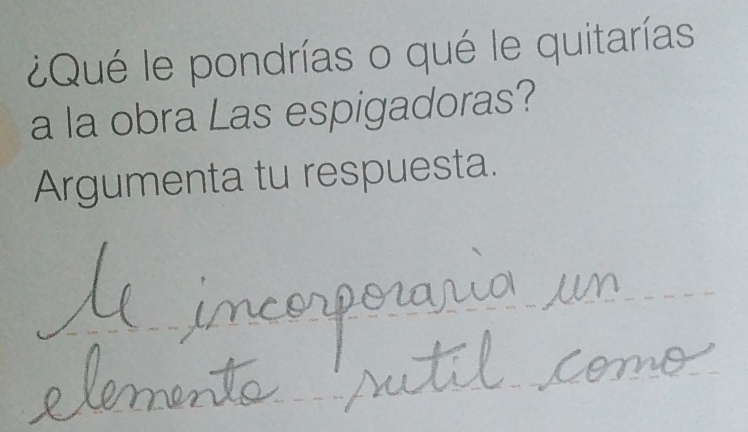 ¿Qué le pondrías o qué le quitarías
a la obra Las espigadoras?
Argumenta tu respuesta.
Le incorporaria un
elemento sutil como